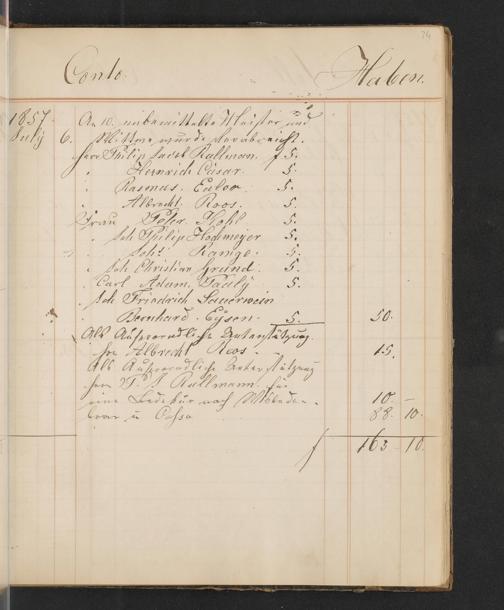 34
Conto. Haben.
1857.
July 6. An 10. unbemittelte Meister und
Wittwe wurde verabreicht.
Herr Philip Jacob Rullmann f 5.
" Heinrich Cäsar 5.
" Rasmus 5.
" Albrecht Roos. 5.
Frau Peter Hohl 5.
" Joh Philip Hochmeyer 5.
" Joh: Range. 5.
" Joh Christian Grund. 5.
Carl Adam Pauly 5.
" Joh Friedrich Sauerwein
" Bernhard Eysen 5. 50.
Als Ausserordliche Unterstützung
Herr Albrecht Roos - 15.
Als Ausserordliche Unterstützung
Herr P. J Rullmann für
eine Badekur nach 10 -
baar in Cassa 88. 10.
f 163 - 10.